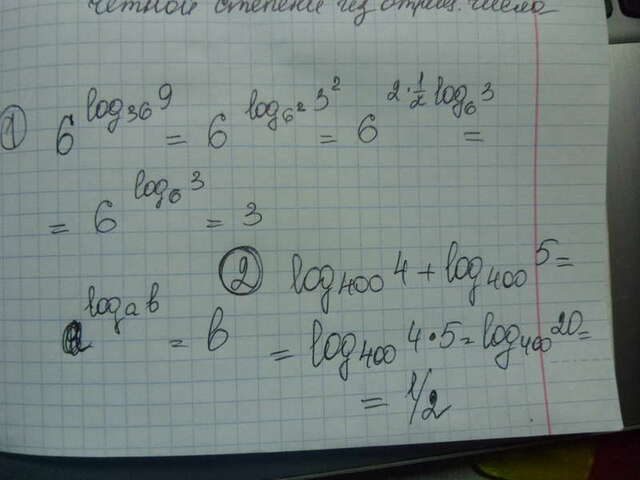 четной степени из отриц. числа
① 6^log₃₆9 = 6^log₆²3² = 6^2·½log₆3 =
= 6^log₆3 = 3
② log₄₀₀4 + log₄₀₀5 =
a^logₐb = b
= log₄₀₀4·5 = log₄₀₀20 =
= 1/2